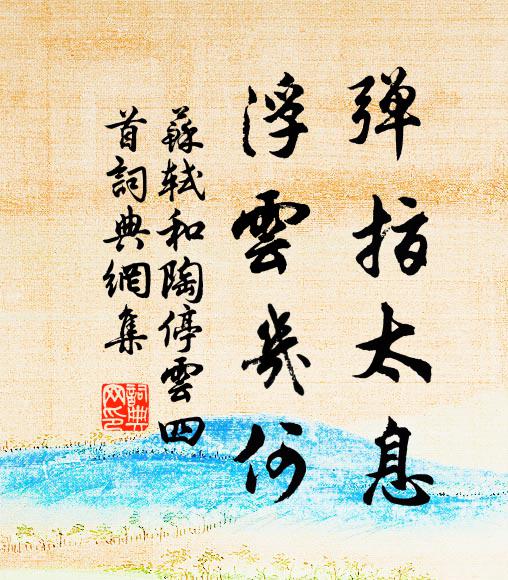 彈指太息
浮雲幾何
蘇軾和陶停雲四
首詞典網集
詞典
网印